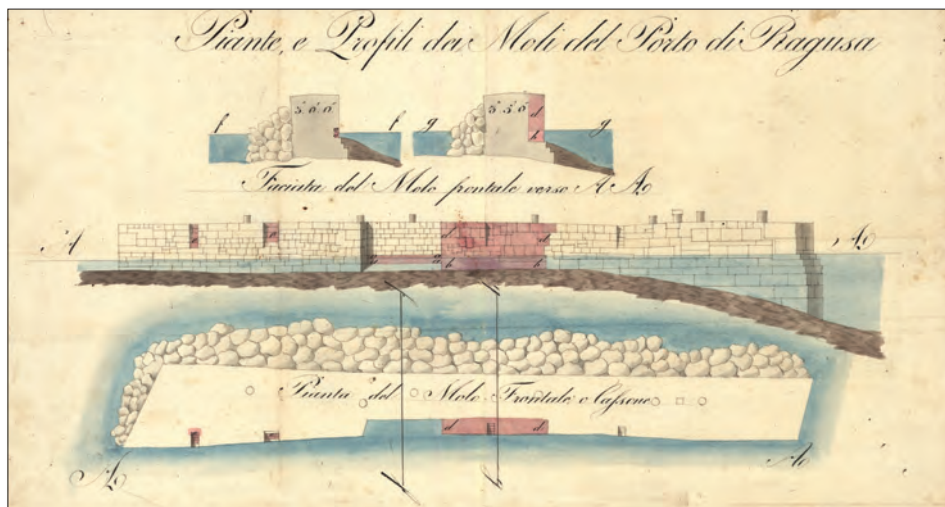 Piante, e Profili dei Moli del Porto di Ragusa
3. 0. 0. 3. 5. 0. d
f f g h g
Faciata del Molo frontale verso A A
A A
e e f d
a a h h
Pianta del Molo Frontale o Cassone
d d
A A